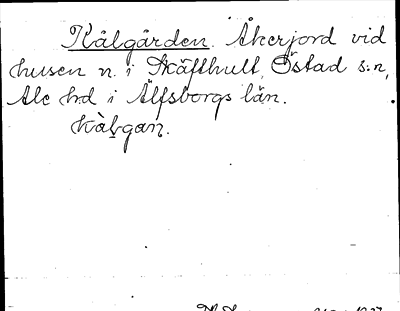 Kålgården. Åkerjord vid
husen n. i Skäfthult, Östad s:n,
Ale hd i Älfsborgs län.
kàl̥gan.